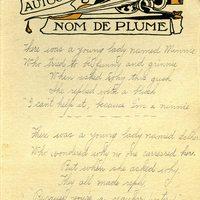 AUTOG
NOM DE PLUME
There was a young lady named Minnie
Who tried to be funny and grinnie
When asked why this gush
She replied with a blush
"I can't help it, because I'm a ninnie
There was a young lady named
Who wondered why no one caressed her
But when she asked why
They all made reply
Because you're a